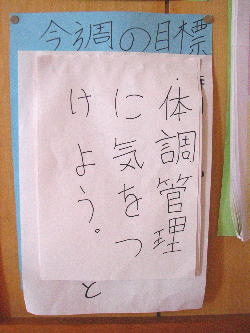 今週の目標
体調管理
に気をつ
けよう。
と